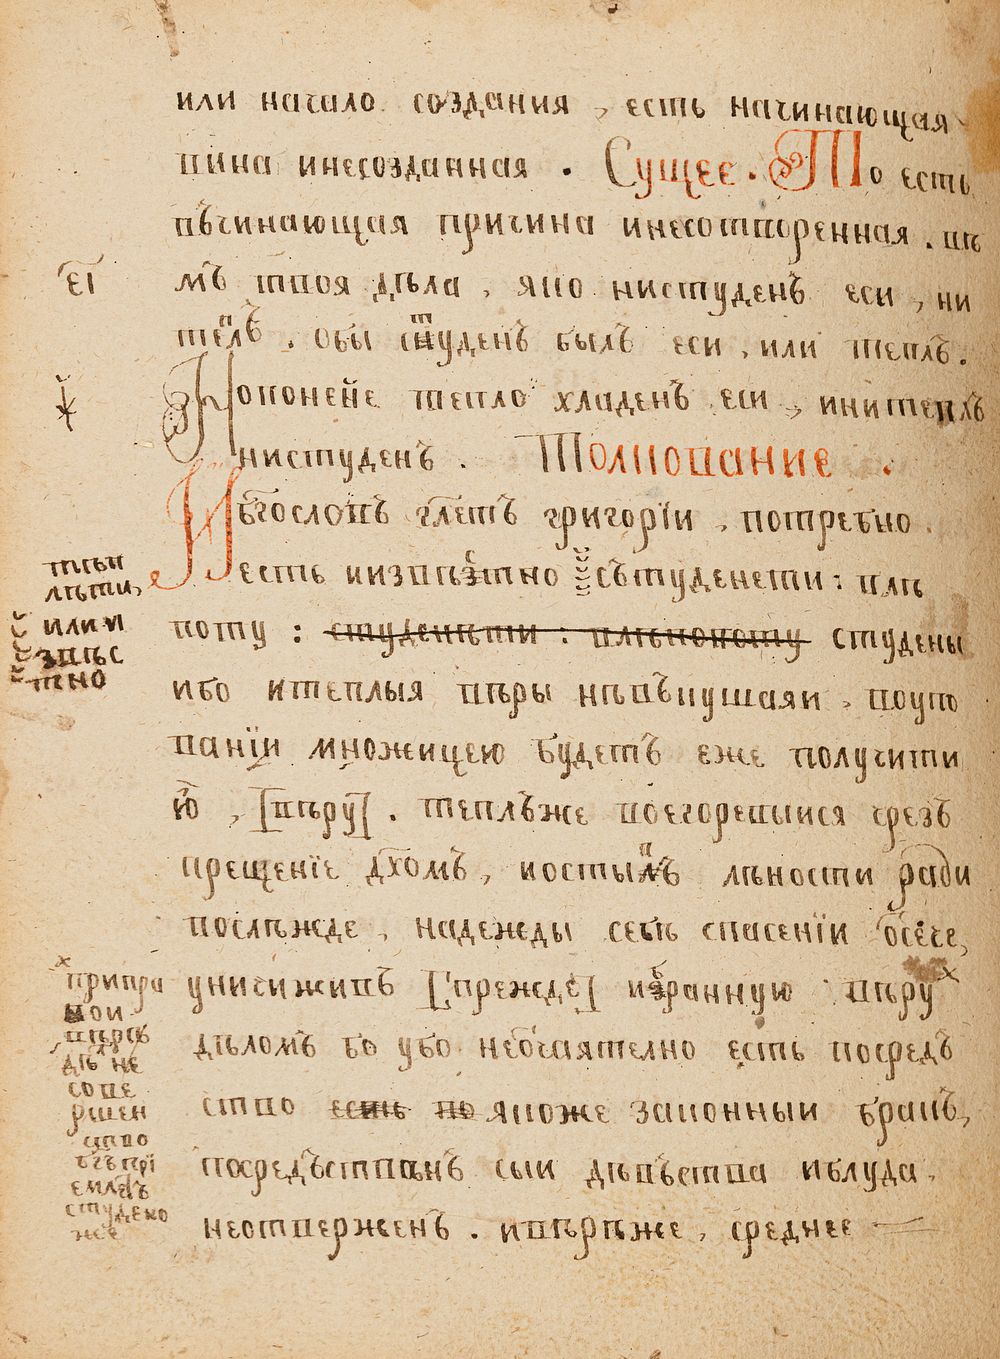 или начало создания , есть начинающая
вина инесозданная . Сущее . То есть
въчинающая причина инесотворенная . вѣ
є҃і
мъ твоя дѣла , яко нистуденъ еси , ни
теплъ . обы студенъ былъ еси , или теплъ .
Нопонейе тепло хладенъ еси , инитеплъ
нистуденъ . Толкование .
Ибгословъ глетъ григорїи , потребно
есть иизвѣстно сътуденети : илѣ
поту : студенѣти : илѣпопоту студены
ибо итеплыя вѣры нѣвъкушаяи , поупо
ванїи множицею будетъ еже получити
ю , [вѣру] . теплѣже возгоревыися чрезъ
крещенїе дхомъ , иостывъ лѣности ради
послѣжде , надежды себѣ спасенїи ѿсече ,
уничиживъ [прежде] избранную вѣру
дѣломъ бо убо неѿчаятелно есть посредъ
ство есть по якоже законныи бракъ ,
посредъственъ сыи дѣвъства иблуда .
неотверженъ . ивѣрѣже , среднее
тщи
лѣти ,
или и
звѣс
тно
припра
вои
вѣрѣ
дѣ не
сове
ршен
аго
бгъ прї
емлетъ
студено
же